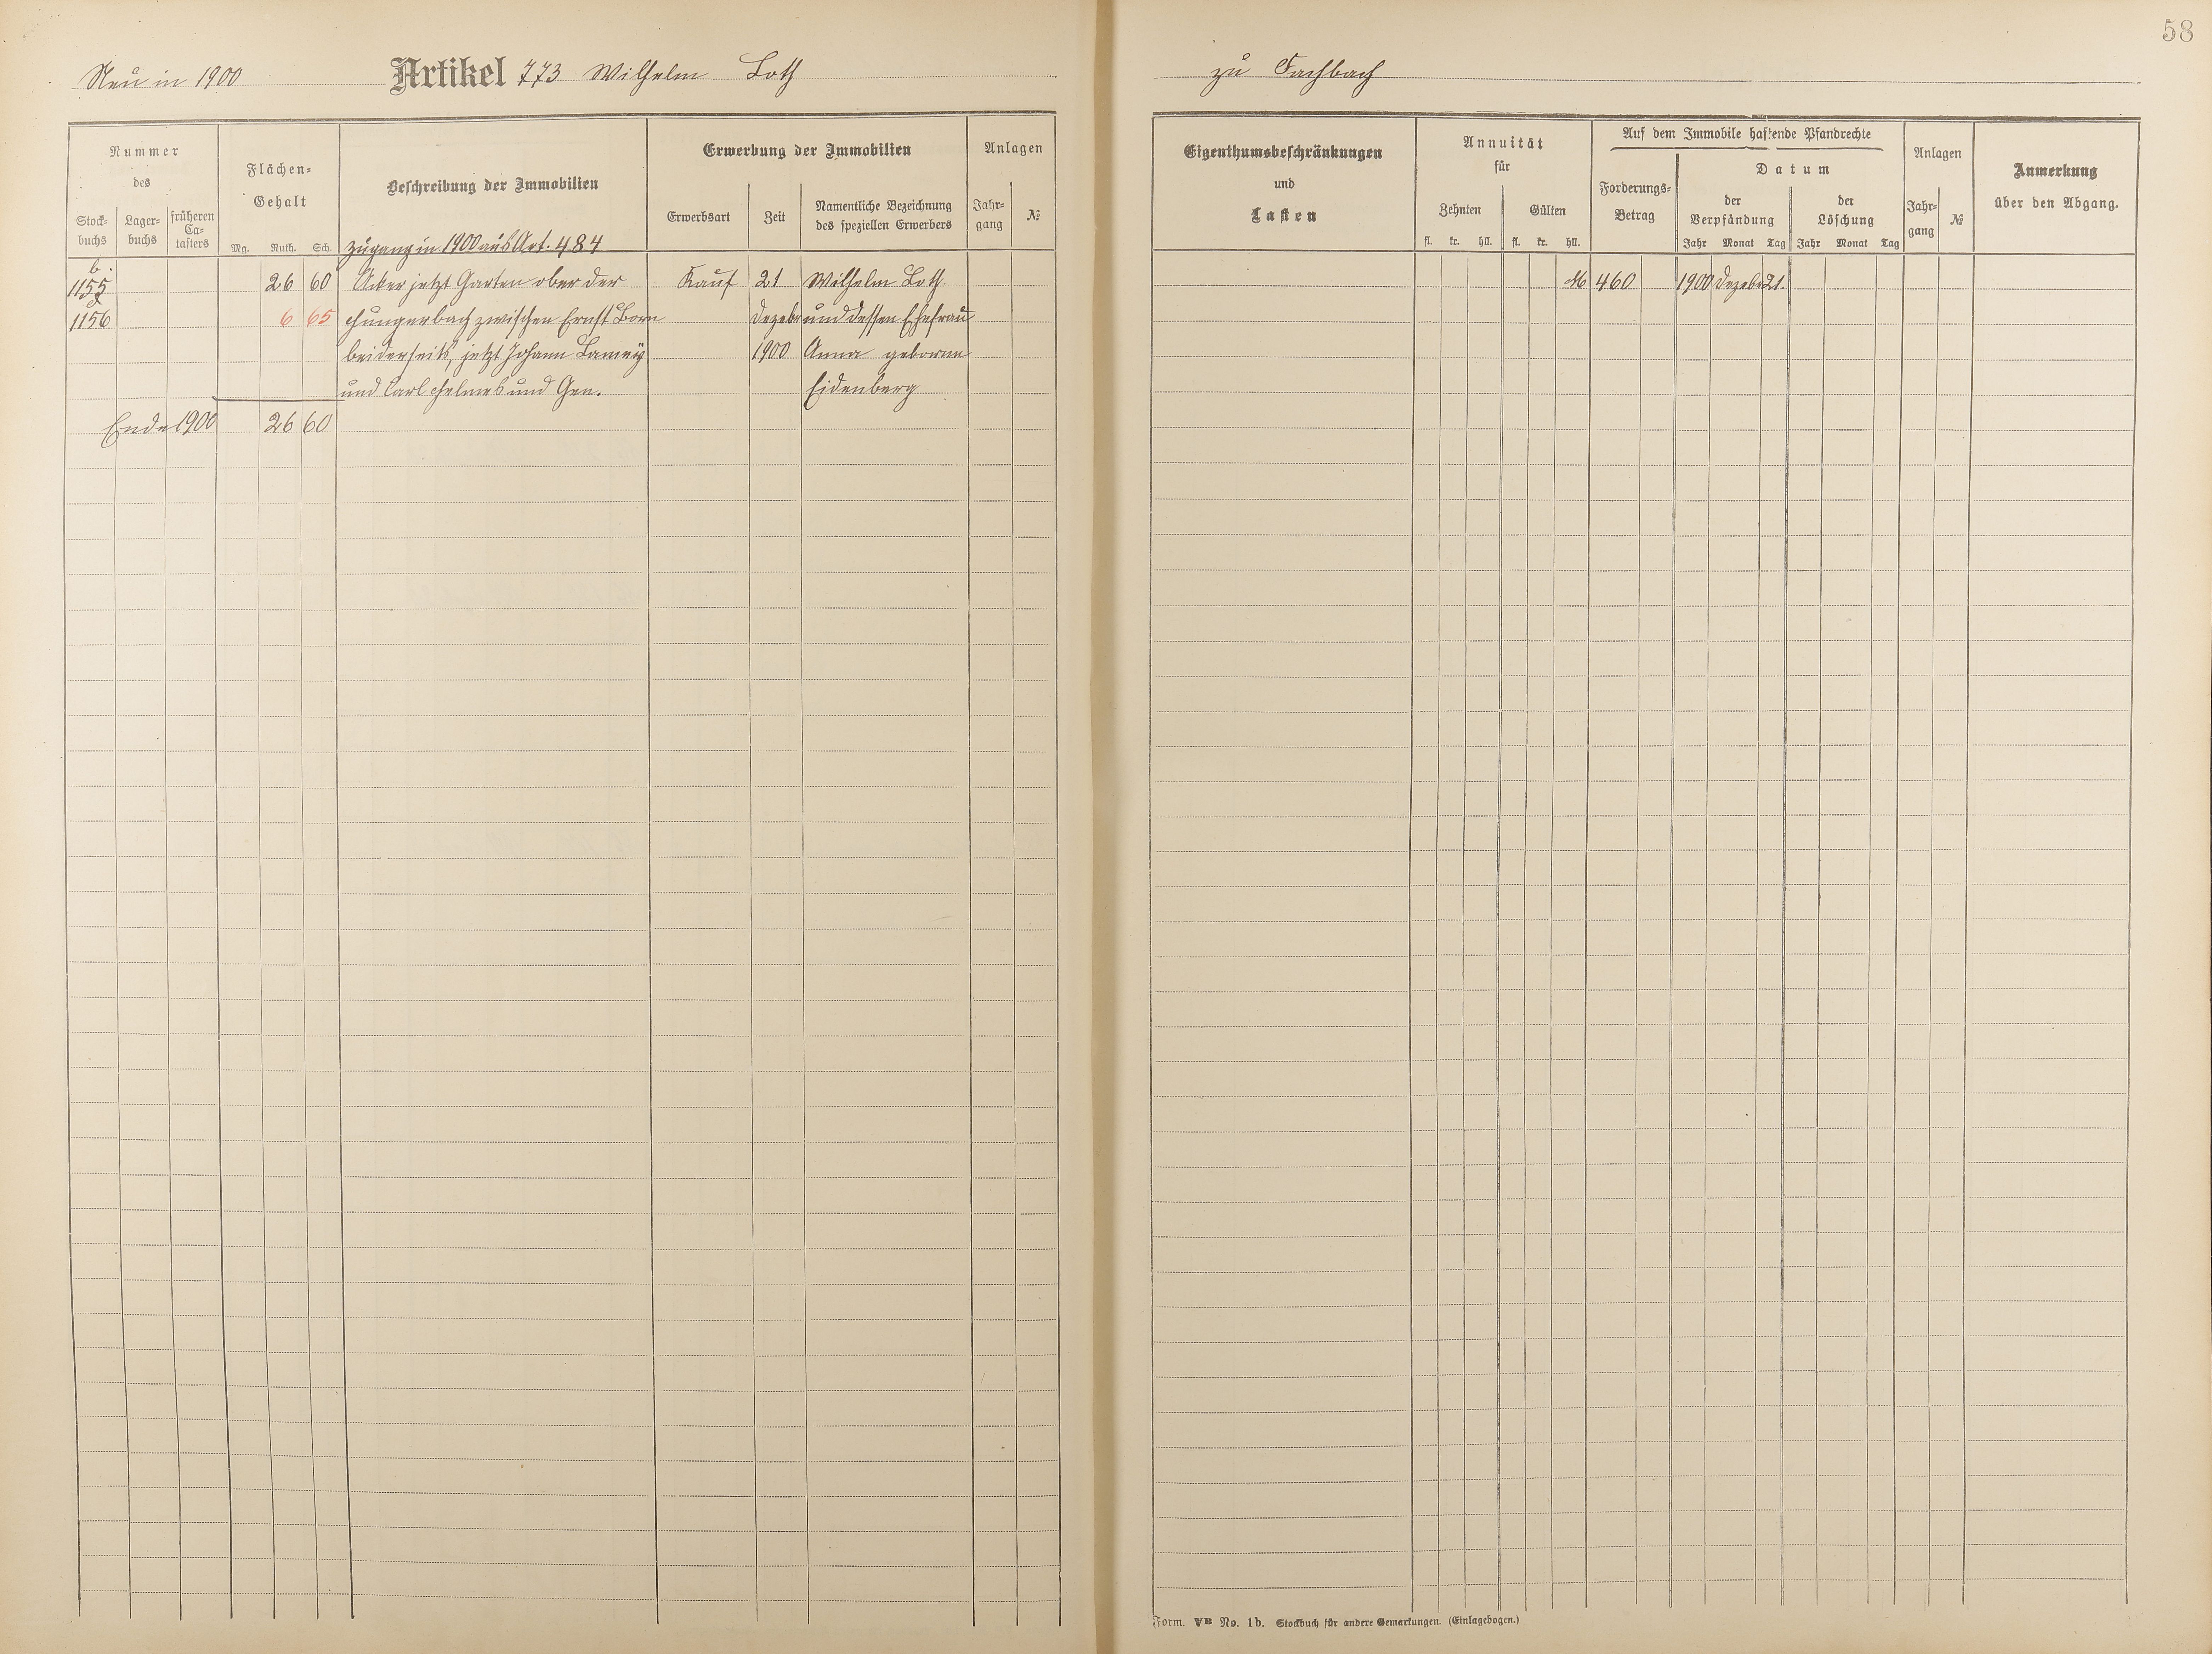 58
Neu in 1900 Artikel 773 Wilhelm Loth zu Fachbach
Nummer
des
Stock-
buchs
Lager-
buchs
früheren
Ca-
tasters
Flächen-
Gehalt
Mg. Ruth. Sch.
Beschreibung der Immobilien
Erwerbung der Immobilien
Erwerbsart
Zeit
Namentliche Bezeichnung
des speziellen Erwerbers
Anlagen
Jahr-
gang
№
Zugang in 1900 aus Art. 484
b.
1155 26 60 Acker jetzt Garten ober der Kauf 21 Wilhelm Loth
1156 6 65 Hungerbach zwischen Ernst Born Dezebr und dessen Ehefrau
beiderseits, jetzt Johann 1900 Anna geborne
und Carl Helmes und Gen. Eidenberg
Ende 1900 26 60
Eigenthumsbeschränkungen
und
Lasten
Annuität
für
Zehnten
Gülten
fl. kr. hll. fl. kr. hll.
Auf dem Immobile haftende Pfandrechte
Forderungs-
Betrag
Datum
der
Verpfändung
Jahr Monat Tag
der
Löschung
Jahr Monat Tag
Anlagen
Jahr-
gang
№
Anmerkung
über den Abgang.
M 460 1900 Dezebr 21.
Form. VB No. 1b. Stockbuch für andere Gemarkungen. (Einlagebogen.)